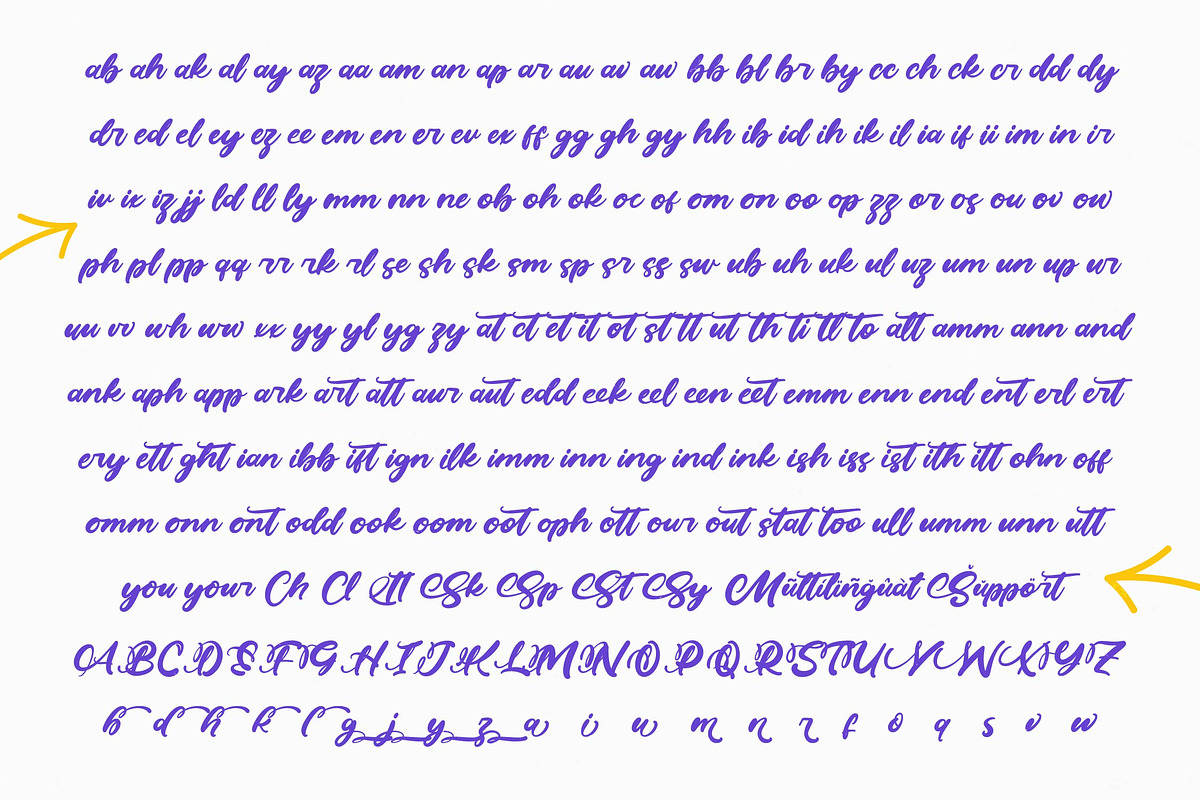 ab ah ak al ay az aa am an ap ar au av aw bb bl br by cc ch ck cr dd dy
dr ed el ey ez ee em en er ev ex ff gg gh gy hh ib id ih ik il ia if ii im in ir
iv ix iz jj ld ll ly mm nn ne ob oh ok oc of om on oo op zz or os ou ov ow
ph pl pp qq rr rk rl se sh sk sm sp sr ss sw ub uh uk ul uz um un up ur
uu vv wh ww xx yy yl yg zy at ct et it ot st tt ut th ti tl to alt amm ann and
ank aph app ark art att awr aut edd eek eel een eet emm enn end ent erl ert
ery ett ght ian ibb ift ign ilk imm inn ing ind ink ish iss ist ith itt ohn off
omm onn ont odd ook oom oot oph ott our out stat too ull umm unn utt
you your Ch Cl Sk Sp St Sy Support
A B C D E F G H I J K L M N O P Q R S T U V W X Y Z
b d h k l g j y z a i w m n r f o q s v w